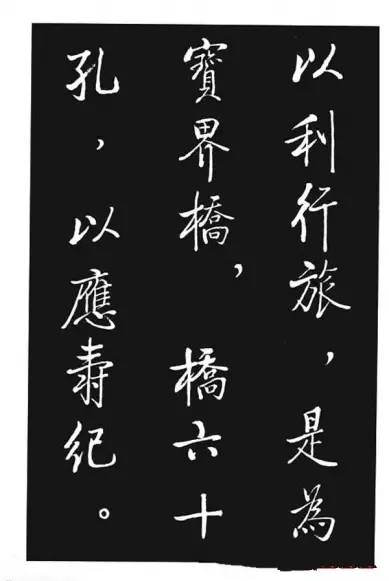 以利行旅，是為
寶界橋，橋六十
孔，以應壽紀。